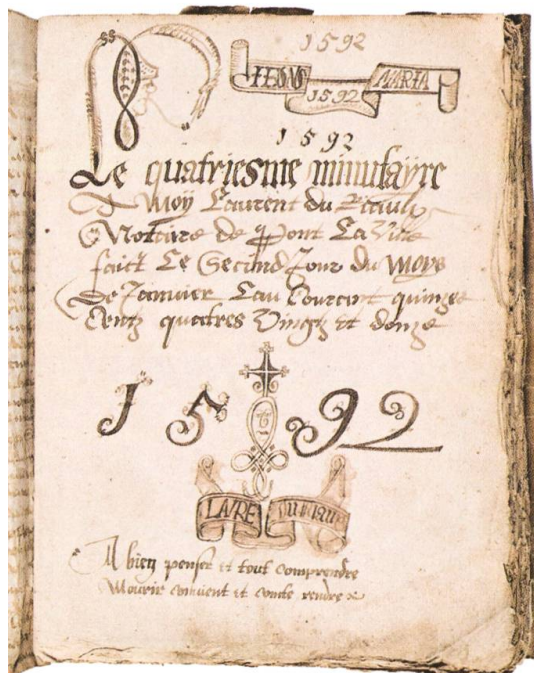 1592
IESUS MARIA
1592
1592
Le quatriesme minutayre
A Moÿ Laurent du
Notaire de Pont La Ville
faict Le Second Jour du Moys
De Janvier Lan Courant quinze
Centz quatres Vingtz et douze
1592
LAVRE
A bien penser et tout comprendre
Mourir convient et comte rendre